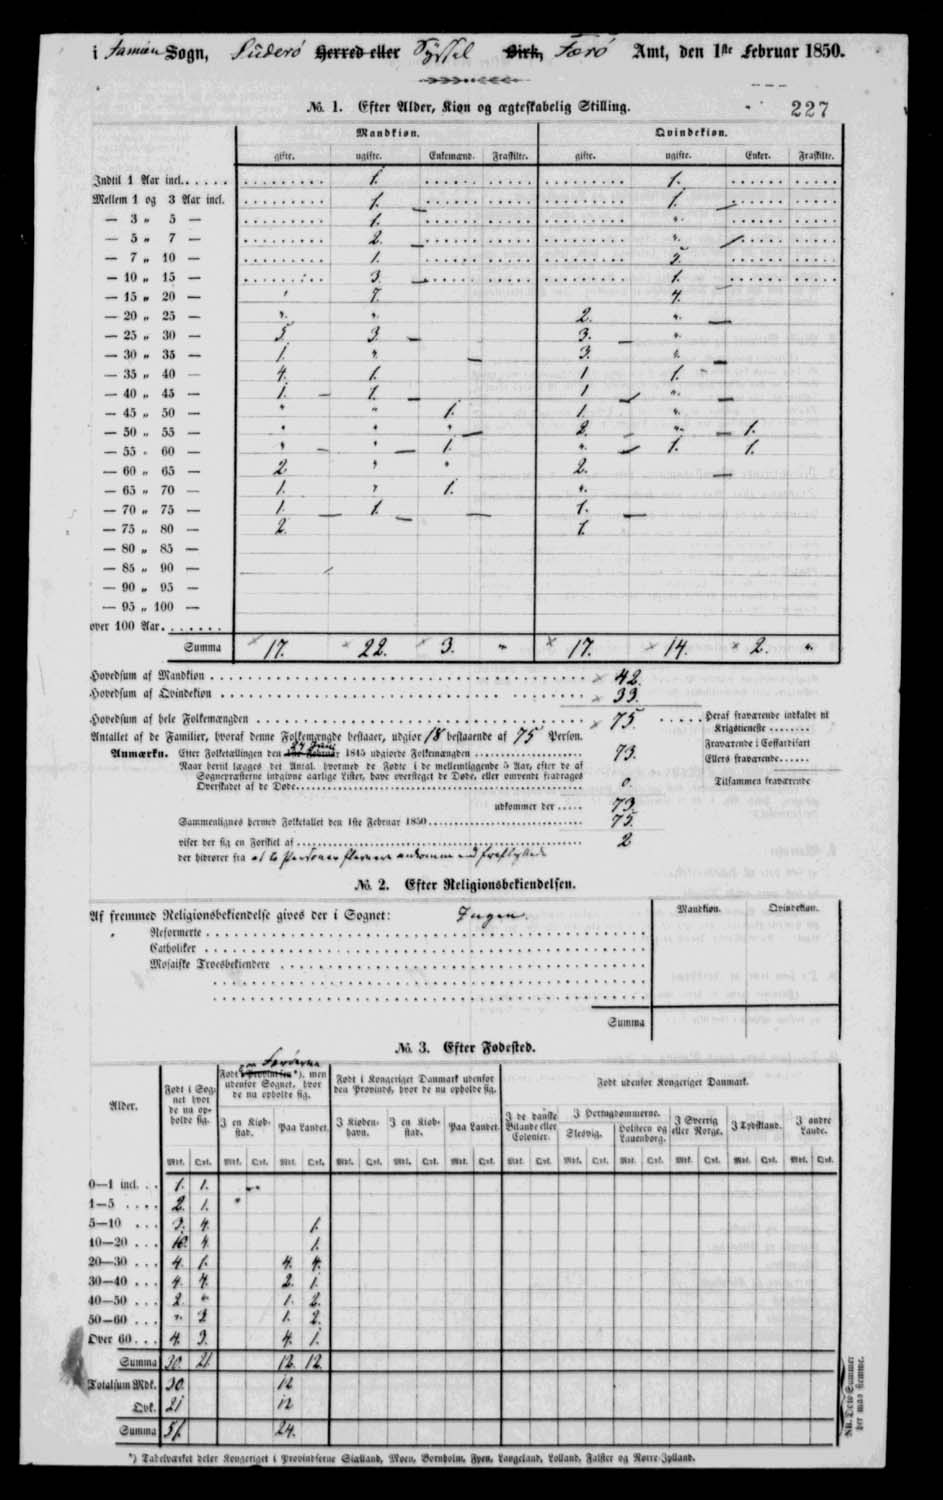 i Famien Sogn, Suderö Herred eller Syssel Birk, Færö Amt, den 1ste Februar 1850.
227
No. 1. Efter Alder, Kiøn og ægteskabelig Stilling.
Mandkiøn. Qvindekiøn.
gifte. ugifte. Enkemænd. Fraskilte. gifte. ugifte. Enker. Fraskilte.
Indtil 1 Aar incl. 1. 1.
Mellem 1 og 3 Aar incl. 1. 1.
— 3 „ 5 — 1. „
— 5 „ 7 — 2. „
— 7 „ 10 — 1. 5.
— 10 „ 15 — 3. 1.
— 15 „ 20 — „ 7. 4.
— 20 „ 25 — „ „ 2. „
— 25 „ 30 — 5 3. 3. „
— 30 „ 35 — 1. „ 3. „
— 35 „ 40 — 4. 1. 1 1.
— 40 „ 45 — 1. 1. 1 „
— 45 „ 50 — „ „ 1. 1. „
— 50 „ 55 — „ „ „ 2. „ 1.
— 55 „ 60 — „ „ 1. „ 1. 1.
— 60 „ 65 — 2 „ „ 2.
— 65 „ 70 — 1. „ 1. „
— 70 „ 75 — 1. 1. 1.
— 75 „ 80 — 2. 1.
— 80 „ 85 —
— 85 „ 90 —
— 90 „ 95 —
— 95 „ 100 —
over 100 Aar
Summa 17. 22. 3. „ 17. 14. 2. „
Hovedsum af Mandkiøn 42.
Hovedsum af Qvindekiøn 33.
Hovedsum af hele Folkemængden 75. Heraf fraværende indkaldt til Krigstieneste
Antallet af de Familier, hvoraf denne Folkemængde bestaaer, udgiør 18 bestaaende af 75 Person.
Fraværende i Coffardifart
Anmærkn. Efter Folketællingen den 1ste Februar 1845 udgiorde Folkemængden 73.
Ellers fraværende
Naar hertil lægges det Antal, hvormed de Fødte i de mellemliggende 5 Aar, efter de af
Sognepræsterne indgivne aarlige Lister, have oversteget de Døde, eller omvendt fradrages
Overskudet af de Døde 0.
Tilsammen fraværende
udkommer der 73.
Sammenlignes hermed Folketallet den 1ste Februar 1850 75.
viser der sig en Forskiel af 2
der hidrører fra at 2 Personer flere ere ankomne end fraflyttede
No. 2. Efter Religionsbekiendelsen.
Mandkiøn. Qvindekiøn.
Af fremmed Religionsbekiendelse gives der i Sognet: Ingen.
Reformerte
Catholiker
Mosaiske Troesbekiendere
Summa
No. 3. Efter Fødested.
Alder.
Født i Sognet hvor de nu opholde sig.
Født i Provindsen*), men udenfor Sognet, hvor de nu opholde sig.
Født i Kongeriget Danmark udenfor den Provinds, hvor de nu opholde sig.
Født udenfor Kongeriget Danmark.
I en Kiøbstad. Paa Landet. I Kiøbenhavn. I en Kiøbstad. Paa Landet. I de danske Bilande eller Colonier. I Hertugdømmerne. Slesvig. Holsteen og Lauenborg. I Sverrig eller Norge. I Tydskland. I andre Lande.
Mdk. Qvk. Mdk. Qvk. Mdk. Qvk. Mdk. Qvk. Mdk. Qvk. Mdk. Qvk. Mdk. Qvk. Mdk. Qvk. Mdk. Qvk. Mdk. Qvk. Mdk. Qvk. Mdk. Qvk.
0—1 incl. 1. 1.
1—5 2. 1.
5—10 3. 4. 1.
10—20 10. 4. 1.
20—30 4. 1. 4. 4.
30—40 4. 4. 2. 1.
40—50 2. „ 1. 2.
50—60 „ 3 1. 2.
Over 60 4. 3. 4. 1.
Summa 30. 21. 12. 12.
Totalsum Mdk. 30. 12
Qvk. 21 12
Summa 51. 24.
NB. Disse Summer der maa stemme.
*) Tabelværket deler Kongeriget i Provindserne Siælland, Møen, Bornholm, Fyen, Langeland, Lolland, Falster og Nørre-Jylland.